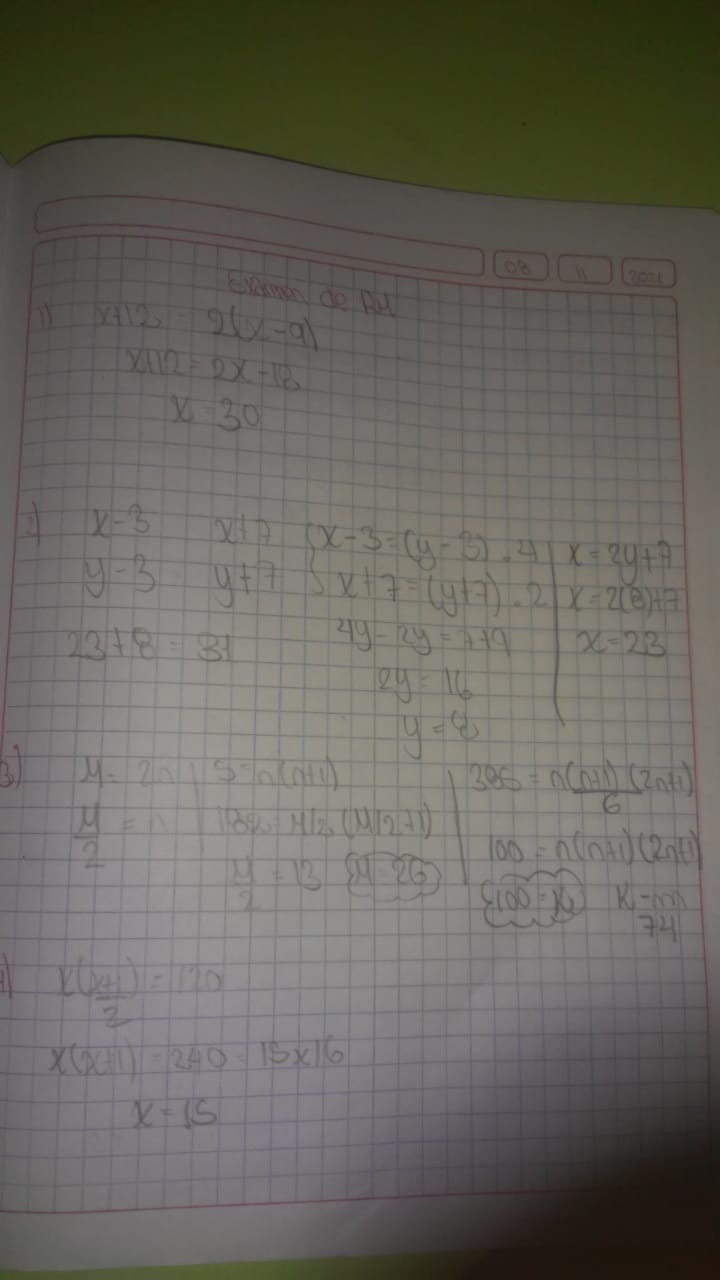 08 11 2021
Examen de RM
1) x+12 = 2(x-9)
x+12 = 2x-18
x = 30
x-3 x+7
y-3 y+7
23+8 = 31
x-3=(y-3).4
x+7=(y+7).2
4y-2y=7+9
2y=16
y=8
x=2y+7
x=2(8)+7
x=23
3) M = 2n
M/2 = n
S=n(n+1)
182 = M/2 (M/2+1)
M/2 = 13 M=26
385 = n(n+1)(2n+1)/6
100 = n(n+1)(2n+1)
100 = K K-m
74
x(x+1)/2 = 120
x(x+1) = 240 = 15x16
x = 15